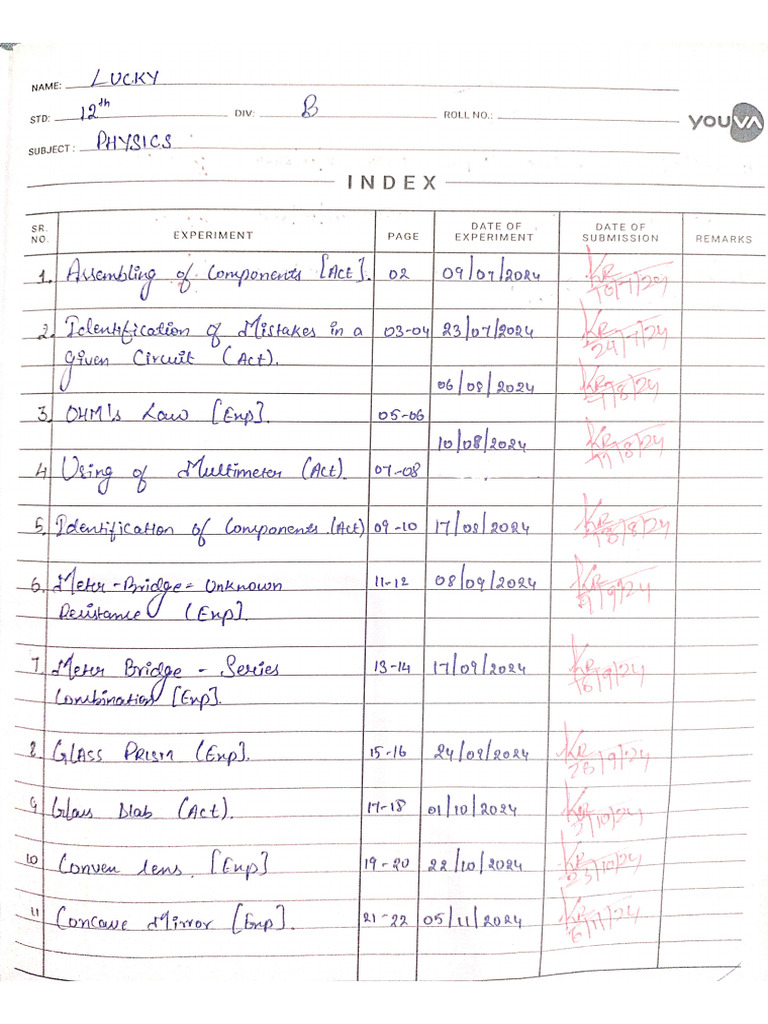 NAME: LUCKY
STD: 12th DIV: B ROLL NO.:
youVA
SUBJECT : PHYSICS
INDEX
SR. NO. EXPERIMENT PAGE DATE OF EXPERIMENT DATE OF SUBMISSION REMARKS
1. Assembling of Components [Act]. 02 09/07/2024 KR
10/7/24
2. Identification of Mistakes in a 03-04 23/07/2024 KR
given Circuit (Act). 24/7/24
06/08/2024 KR
7/8/24
3. OHM's Law [Exp]. 05-06
10/08/2024 KR
11/8/24
4 Using of Multimeter (Act). 07-08
5. Identification of Components (Act) 09-10 17/08/2024 KR
18/8/24
6. Meter-Bridge = Unknown 11-12 08/09/2024 KR
Resistance (Exp]. 9/9/24
7. Meter Bridge - Series 13-14 17/09/2024 KR
Combination [Exp]. 18/9/24
8. GLASS PRISM (Exp]. 15-16 24/09/2024 KR
28/9/24
9 Glass Slab (Act). 17-18 01/10/2024 KR
2/10/24
10 Convex lens. [Exp] 19-20 22/10/2024 KR
23/10/24
11 Concave Mirror [Exp]. 21-22 05/11/2024 KR
6/11/24